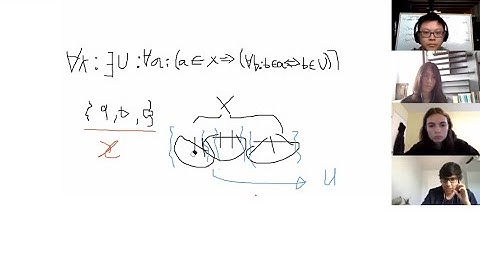 ∀x:∃U:∀a:(a∈X⇒(∀b:b∈a⇔b∈U))
X
{a,b,c}
x
U